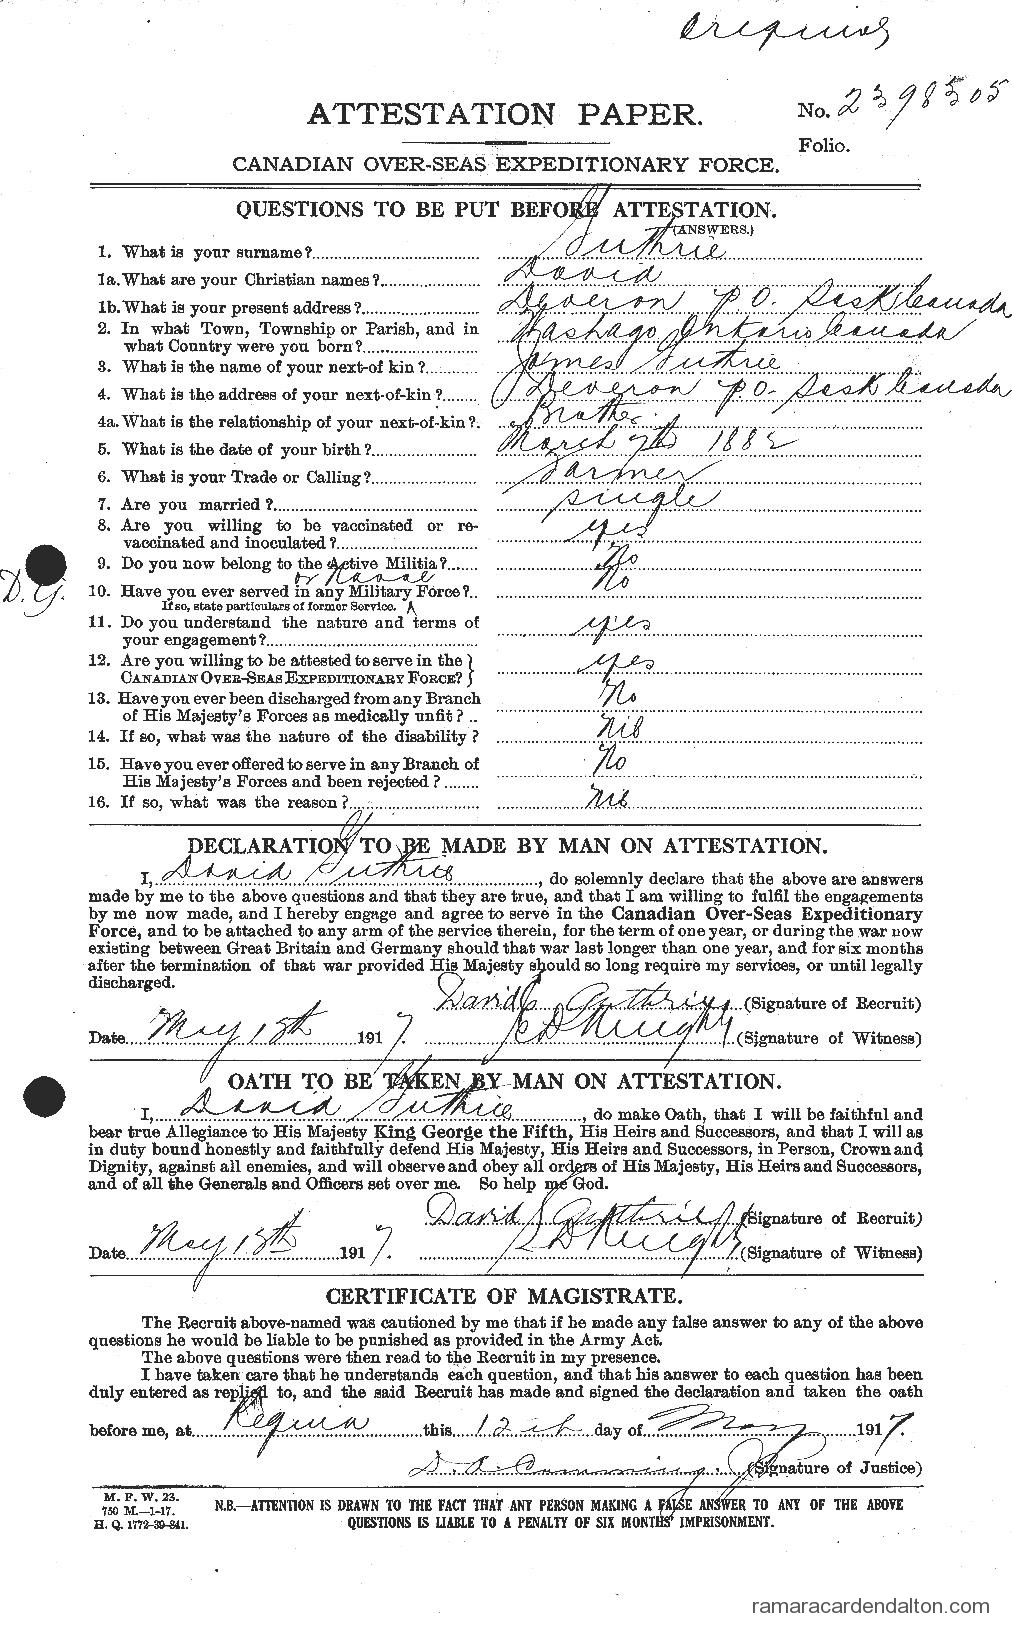 Original
ATTESTATION PAPER.
No. 2398505
Folio.
CANADIAN OVER-SEAS EXPEDITIONARY FORCE.
QUESTIONS TO BE PUT BEFORE ATTESTATION.
(ANSWERS.)
1. What is your surname?.......... Guthrie
1a. What are your Christian names?.......... David
1b. What is your present address?.......... Deveron P.O. Sask Canada
2. In what Town, Township or Parish, and in
what Country were you born?.......... Washago, Ontario Canada
3. What is the name of your next-of kin?.......... James Guthrie
4. What is the address of your next-of-kin?.......... Deveron P.O. Sask Canada
4a. What is the relationship of your next-of-kin?. Brother
5. What is the date of your birth?.......... March 7th 1882
6. What is your Trade or Calling?.......... Farmer
7. Are you married?.......... single
8. Are you willing to be vaccinated or re-
vaccinated and inoculated?.......... yes
9. Do you now belong to the Active Militia?...... No
or Naval
10. Have you ever served in any Military Force?.. No
If so, state particulars of former Service.
D. G.
11. Do you understand the nature and terms of
your engagement?.......... yes
12. Are you willing to be attested to serve in the
CANADIAN OVER-SEAS EXPEDITIONARY FORCE? yes
13. Have you ever been discharged from any Branch
of His Majesty's Forces as medically unfit? .. No
14. If so, what was the nature of the disability? Nil
15. Have you ever offered to serve in any Branch of
His Majesty's Forces and been rejected? ........ No
16. If so, what was the reason?.......... Nil
DECLARATION TO BE MADE BY MAN ON ATTESTATION.
I, David Guthrie, do solemnly declare that the above are answers
made by me to the above questions and that they are true, and that I am willing to fulfil the engagements
by me now made, and I hereby engage and agree to serve in the Canadian Over-Seas Expeditionary
Force, and to be attached to any arm of the service therein, for the term of one year, or during the war now
existing between Great Britain and Germany should that war last longer than one year, and for six months
after the termination of that war provided His Majesty should so long require my services, or until legally
discharged.
David Guthrie (Signature of Recruit)
Date May 18th 1917. Knight (Signature of Witness)
OATH TO BE TAKEN BY MAN ON ATTESTATION.
I, David Guthrie, do make Oath, that I will be faithful and
bear true Allegiance to His Majesty King George the Fifth, His Heirs and Successors, and that I will as
in duty bound honestly and faithfully defend His Majesty, His Heirs and Successors, in Person, Crown and
Dignity, against all enemies, and will observe and obey all orders of His Majesty, His Heirs and Successors,
and of all the Generals and Officers set over me. So help me God.
David Guthrie (Signature of Recruit)
Date May 18th 1917. Knight (Signature of Witness)
CERTIFICATE OF MAGISTRATE.
The Recruit above-named was cautioned by me that if he made any false answer to any of the above
questions he would be liable to be punished as provided in the Army Act.
The above questions were then read to the Recruit in my presence.
I have taken care that he understands each question, and that his answer to each question has been
duly entered as replied to, and the said Recruit has made and signed the declaration and taken the oath
before me, at Regina this 12th day of May 1917.
(Signature of Justice)
M. F. W. 23.
750 M.—1-17.
H. Q. 1772-39-841.
N.B.—ATTENTION IS DRAWN TO THE FACT THAT ANY PERSON MAKING A FALSE ANSWER TO ANY OF THE ABOVE
QUESTIONS IS LIABLE TO A PENALTY OF SIX MONTHS' IMPRISONMENT.
ramaracardendalton.com